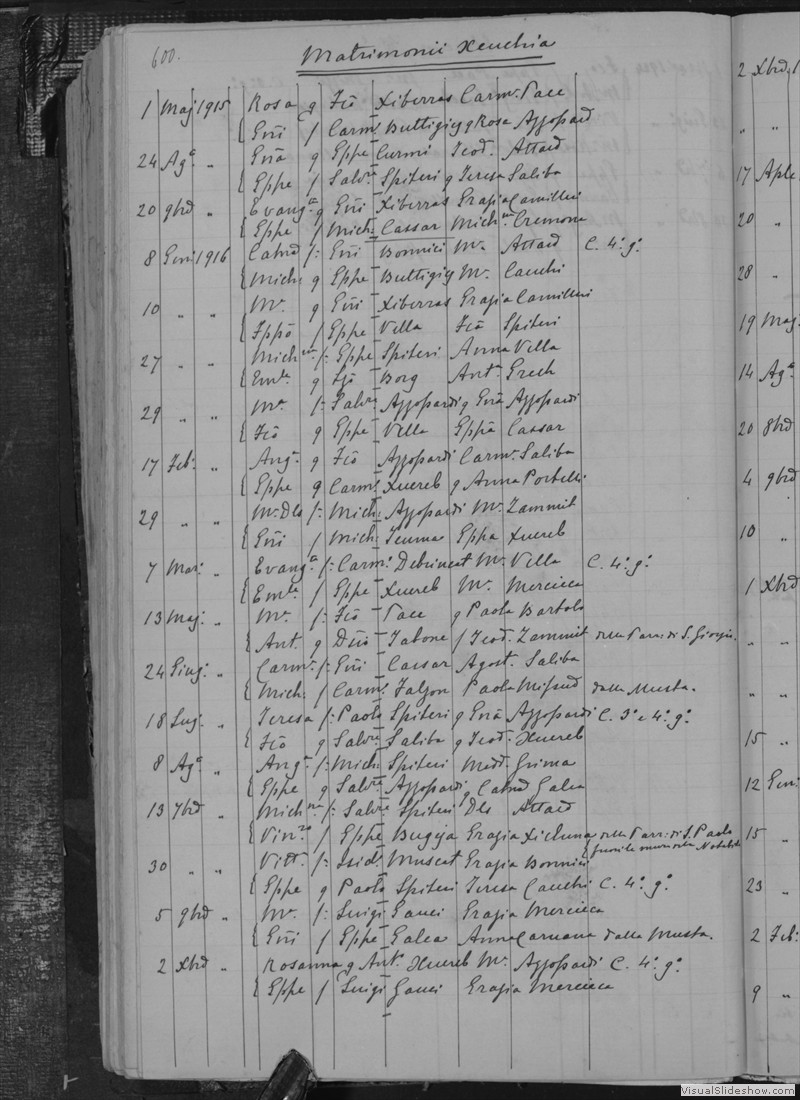 600.
Matrimonii Xeuchia
1 Maj 1915 Rosa q Fcō Xiberras Carmᵃ Pace
{ Gūi f Carmᵒ Buttigieg q Rosa Azzopard
24 Agᵒ „ Gūa q Eppe Curmi Teod. Attard
{ Eppe f Salvʳᵉ Spiteri q Teresa Saliba
20 9brē „ Evangᵃ q Gūi Xiberras Grazia Camilleri
{ Eppe f Mich: Cassar Michⁿᵃ Cremona
8 Gen: 1916 Catnā f: Gūi Bonnici Mᵃ Attard C. 4ᵒ gᵒ
{ Mich: q Eppe Buttigieg Mᵃ Cauchi
10 „ „ Mᵃ q Gūi Xiberras Grazia Camilleri
{ Fppō f Eppe Vella Fcā Spiteri
27 „ „ Michⁿᵃ f: Eppe Spiteri Anna Vella
{ Emˡᵉ q Fcō Borg Antᵃ Grech
29 „ „ Mᵃ f: Salvʳᵉ Azzopardi q Gūa Azzopardi
{ Fcō q Eppe Vella Eppa Cassar
17 Feb: „ Angᵃ q Fcō Azzopardi Carmᵃ Saliba
{ Eppe q Carmᵒ Xuereb q Anna Portelli
29 „ „ Mᵃ Dls f: Mich: Azzopardi Mᵃ Zammit
{ Gūi f Mich: Teuma Eppa Xuereb
7 Mar: „ Evangᵃ f: Carmᵒ Debrincat Mᵃ Vella C. 4ᵒ gᵒ
{ Emˡᵉ f Eppe Xuereb Mᵃ Mercieca
13 Maj: „ Mᵃ f: Fcō Pace q Paola Bartolo
{ Ant. q Dūō Tabone f Teod. Zammit della Parr: di S. Giorgio.
24 Giug: „ Carmᵃ f: Gūi Cassar Agost. Saliba
{ Mich: f Carmᵒ Falzon Paola Mifsud dalla Musta.
18 Lug. „ Teresa f: Paolo Spiteri q Gūa Azzopardi C. 3ᵒ e 4ᵒ gᵒ
{ Fcō q Salvʳᵉ Saliba q Teod. Xuereb
8 Agᵒ „ Angᵃ f: Mich: Spiteri Madd. Grima
{ Eppe q Salvʳᵉ Azzopardi q Catnā Galea
13 7brē „ Michⁿᵃ f: Salvʳᵉ Spiteri Dls Attard
{ Vinᶻᵒ f Eppe Bugeja Grazia Xicluna della Parr: di S. Paolo
30 „ „ Vitt. f: Isid: Muscat Grazia Bonnici
{ Eppe q Paolo Spiteri Teresa Cauchi C. 4ᵒ gᵒ
5 9brē „ Mᵃ f: Luigi Gauci Grazia Mercieca
{ Gūi f Eppe Galea Anna Caruana dalla Musta.
2 Xbrē „ Rosanna q Antᵒ Xuereb Mᵃ Azzopardi C. 4ᵒ gᵒ
{ Eppe f Luigi Gauci Grazia Mercieca
2 Xbrē 1
„ „
17 Aple
20 „
28 „
19 Maj
14 Agᵒ
20 8brē
4 9brē
10 „
1 Xbrē
„ „
„ „
15 „
12 Gen:
15 „
23 „
2 Feb:
9 „
VisualSlideshow.com